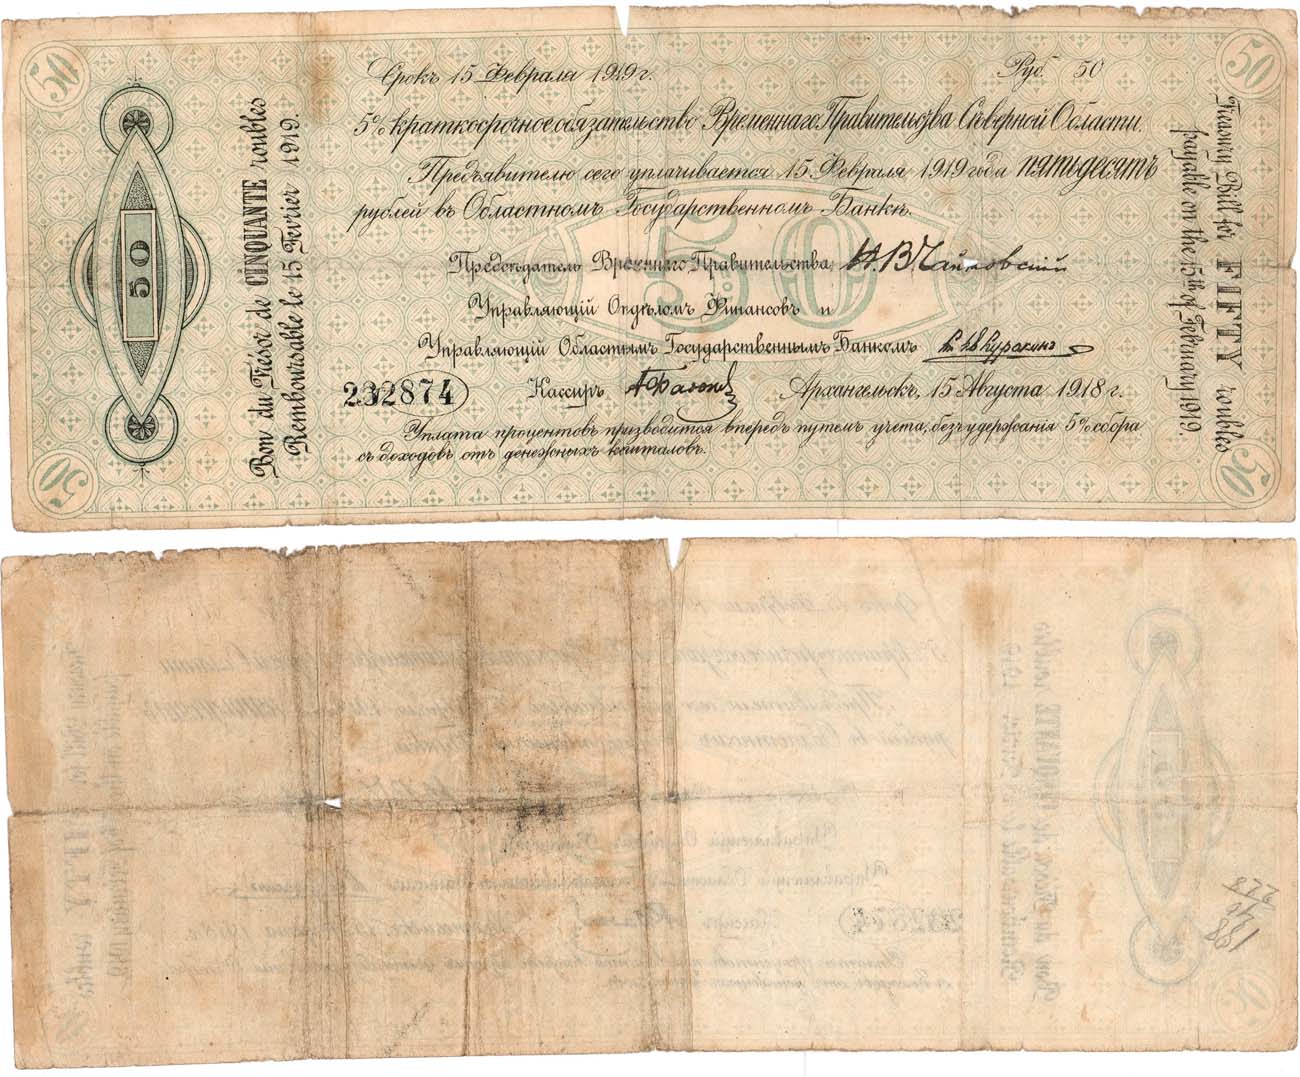 50
50
Срокъ 15 Февраля 1919 г.
Руб. 50
5% краткосрочное обязательство Временнаго Правительства Сѣверной Области.
Предъявителю сего уплачивается 15 Февраля 1919 года пятьдесятъ
рублей въ Областномъ Государственномъ Банкѣ.
50
Предсѣдатель Времннаго Правительства Н. В. Чайковский
Управляющій Отдѣломъ Финансовъ и
Управляющій Областнымъ Государственнымъ Банкомъ
232874
Кассиръ
Архангельскъ, 15 Августа 1918 г.
Уплата процентовъ призводится впередъ путемъ учета, безъ удержанія 5% сбора
съ доходовъ отъ денежныхъ капиталовъ.
50
Bon du Trésor de CINQUANTE roubles
Remboursable le 15 Fevrier 1919.
Tresoury Bill for FIFTY roubles
payable on the 15th of February 1919.
50
50
228
40
188